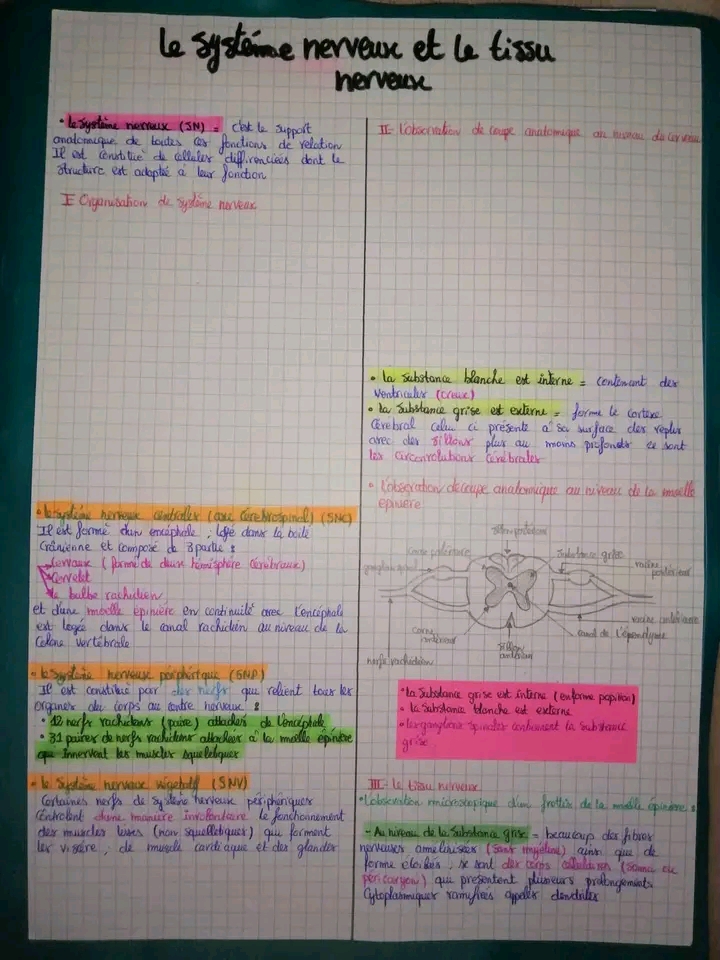 le système nerveux et le tissu
nerveux
• le système nerveux (SN) = c'est le support
anatomique de toutes ces fonctions de relation
Il est constitué de cellules différenciées dont la
structure est adapté à leur fonction
I Organisation de système nerveux
• le système nerveux centrales (axe cérébrospinal) (SNC)
Il est formé d'un encéphale, logé dans la boite
crânienne et composé de 3 partie :
cerveaux (formé de deux hémisphère cérébraux)
cervelet
le bulbe rachidien
et d'une moelle épinière en continuité avec l'encéphale
est logée dans le canal rachidien au niveau de la
colone vertébrale
• le système nerveux périphérique (SNP)
Il est constitué par des nerfs qui relient tous les
organes du corps au centre nerveux :
• 12 nerfs rachidiens (paire) attachés de l'encéphale
• 31 paires de nerfs rachidiens attachées à la moelle épinière
que innervent les muscles squelettiques
• le système nerveux végétatif (SNV)
Certaines nerfs de système nerveux périphériques
contrôlent d'une manière involontaire le fonctionnement
des muscles lisses (non squelettiques) qui forment
les viscère, de muscle cardiaque et des glandes
II- l'observation de coupe anatomique au niveau du cerveau
• la substance blanche est interne = contenant des
ventricules (creux)
• la substance grise est externe = forme le cortexe
cérébral celui ci présente à sa surface des replis
avec des sillons plus au moins profonds ce sont
les circonvolutions cérébrales
• l'observation de coupe anatomique au niveau de la moelle
épinière
sillon postérieur
corne postérieure
substance grise
ganglion spinal
racine
postérieur
racine antérieure
corne
antérieur
sillon
antérieur
canal de l'épendyme
nerfs rachidien
• la substance grise est interne (en forme papillon)
• la substance blanche est externe
• les ganglions spinales contiennent la substance
grise
III- le tissu nerveux
• l'observation microscopique d'un frottis de la moelle épinière :
- Au niveau de la substance grise = beaucoup des fibres
nerveuses amélénisées (sans myéline) ainsi que de
forme étoilés, se sont des corps cellulaires (soma ou
péricaryon) qui présentent plusieurs prolongements
cytoplasmiques ramifiés appelés dendrites